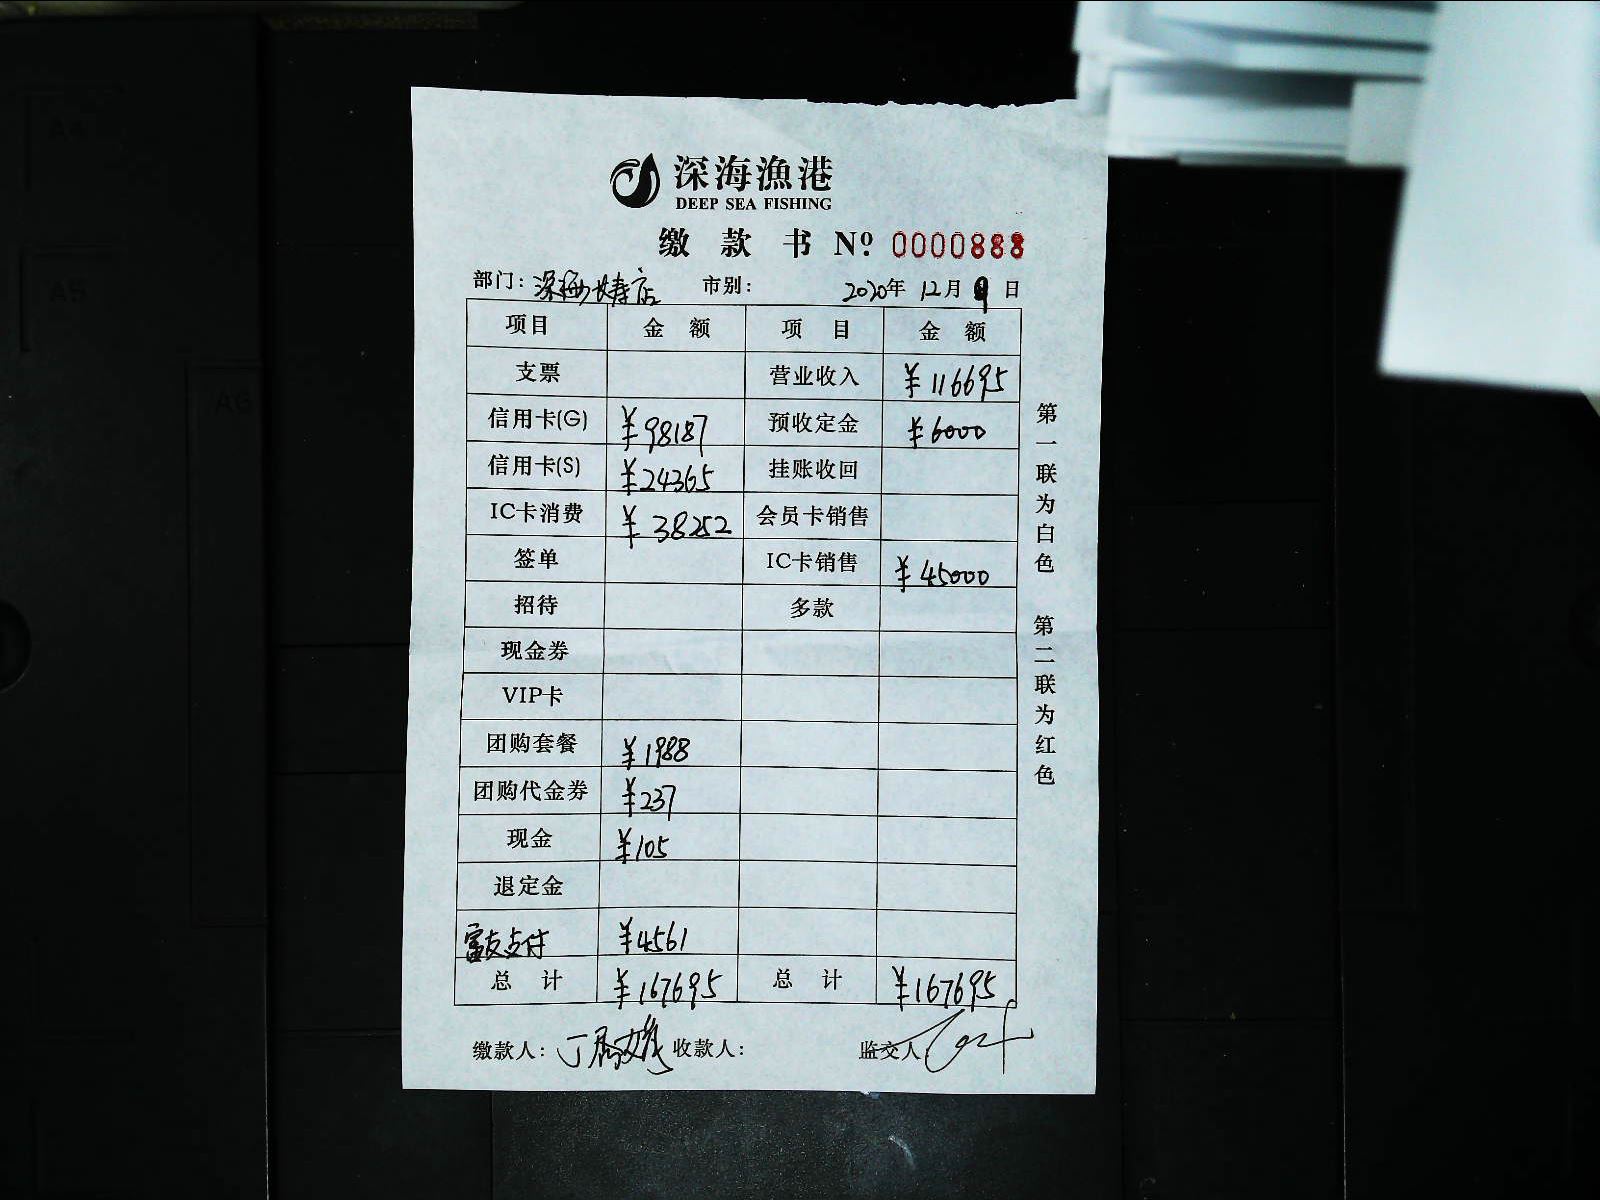 深海漁港
DEEP SEA FISHING
缴 款 书 Nº 0000888
部门: 市别: 2020年 12月 9日
项目 金 额 项 目 金 额
支票 营业收入 ¥116695
信用卡(G) ¥98187 预收定金 ¥6000
信用卡(S) ¥24365 挂账收回
IC卡消费 ¥38252 会员卡销售
签单 IC卡销售 ¥45000
招待 多款
现金券
VIP卡
团购套餐 ¥1988
团购代金券 ¥237
现金 ¥105
退定金
富友支付 ¥4561
总 计 ¥167695 总 计 ¥167695
缴款人: 收款人: 监交人
第一联为白色 第二联为红色
A4
A5
A6